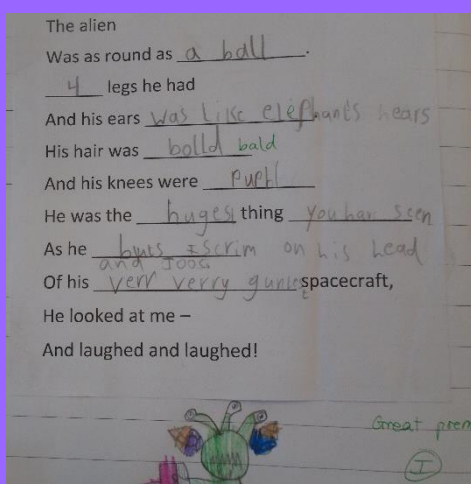 The alien
Was as round as a ball.
4 legs he had
And his ears was like elephants hears
His hair was bolld bald
And his knees were
He was the hugest thing you hav seen
As he buts iscrim on his head
and
Of his verr verry spacecraft,
He looked at me –
And laughed and laughed!
Great
I